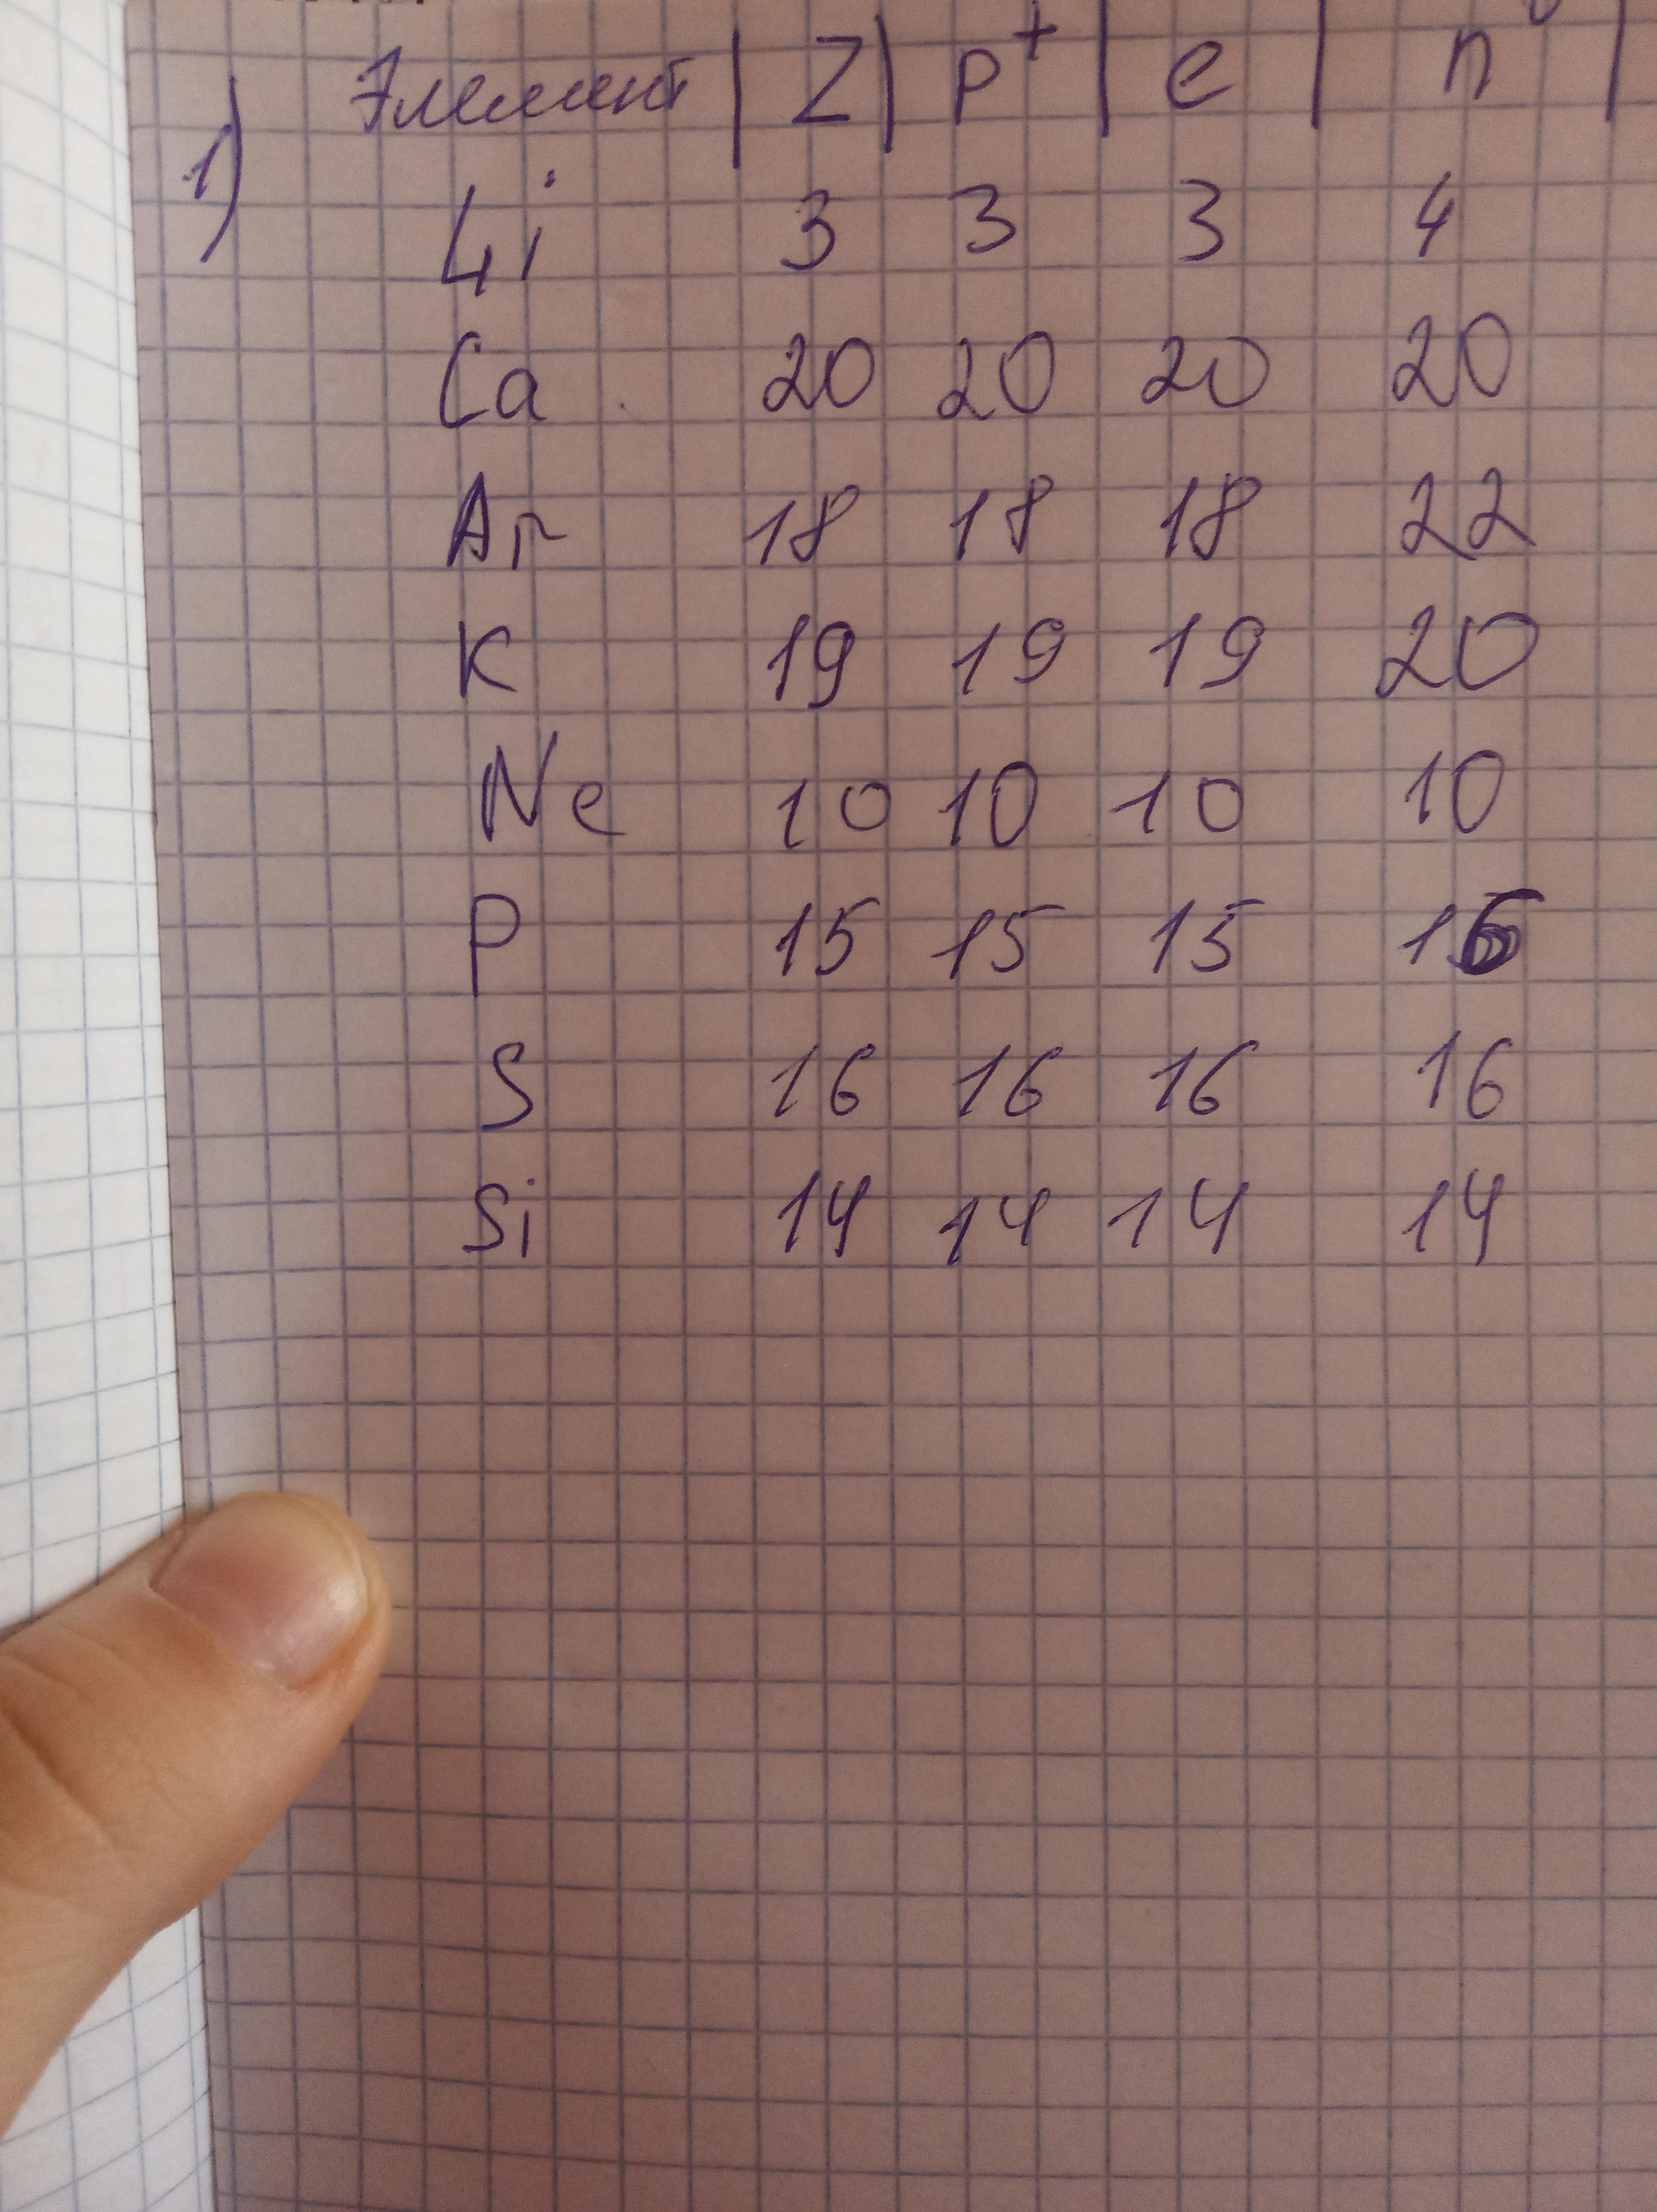 Элемент | Z | p+ | e | n0 |
1) Li 3 3 3 4
Ca 20 20 20 20
Ar 18 18 18 22
K 19 19 19 20
Ne 10 10 10 10
P 15 15 15 16
S 16 16 16 16
Si 14 14 14 14